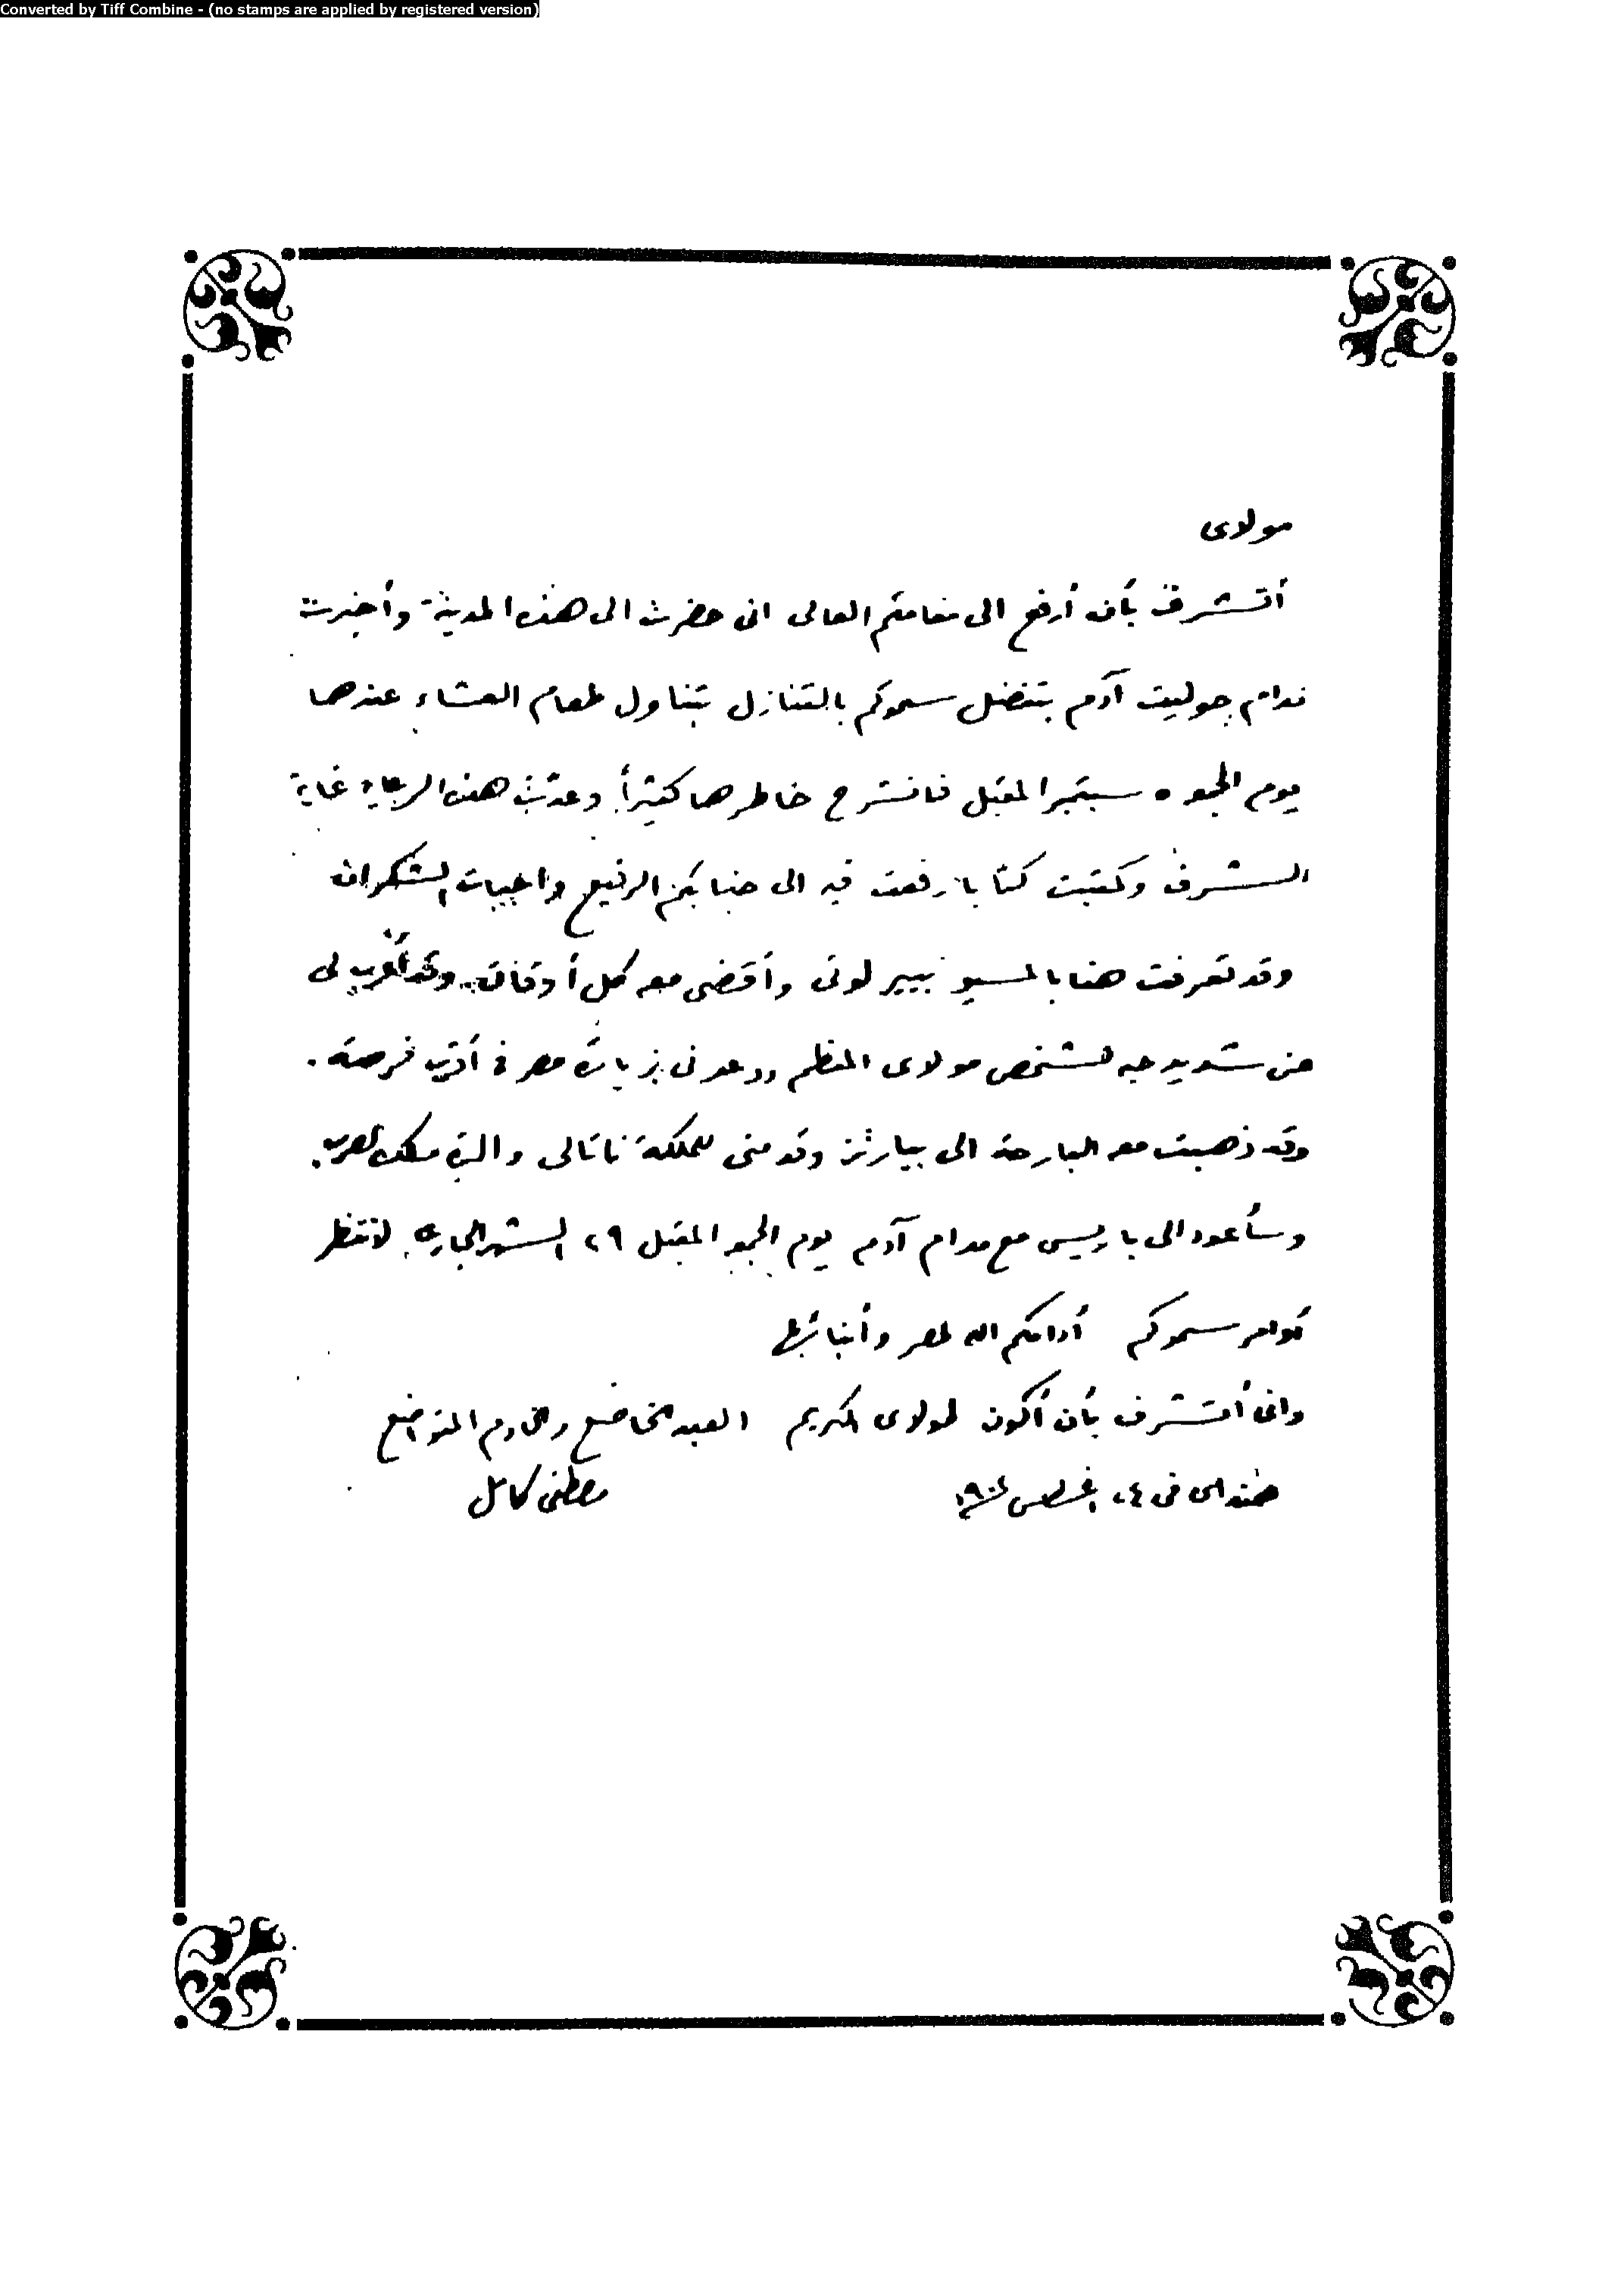 Converted by Tiff Combine - (no stamps are applied by registered version)
مولاى
أتشرف بأن أرفع الى مقامكم العالى انى حضرت الى هذه المدينة وأخبرت
مدام جوليت آدم بتفضل سموكم بالتنازل بتناول طعام العشاء عندها
يوم الجمعه ٥ سبتمبر المقبل فانشرح خاطرها كثيراً وعدّت هذه الزيارة غاية
الشرف وكتبت كتابا رفعت فيه الى جنابكم الرفيع واجبات الشكران
وقد تعرفت هنا بالمسيو بيير لوتى وأقضى معه كل أوقاتى وقد أعرب لى
عن شديد حبه لشخص مولاى المعظم ووعدنى بزيارة مصر فى أقرب فرصة .
وقد ذهبت معه البارحة الى بيارتز وقدمنى للملكة ناتالى والدة ملك الصرب .
وسأعود الى باريس مع مدام آدم يوم الجمعه المقبل ٢٩ الشهر الجارى لأنتظر
أوامر سموكم أدامكم الله لمصر وأبنائها
وانى أتشرف بأن أكون لمولاى الكريم العبد الخاضع والخادم المتواضع
فى ٢٤ اغسطس مصطفى كامل